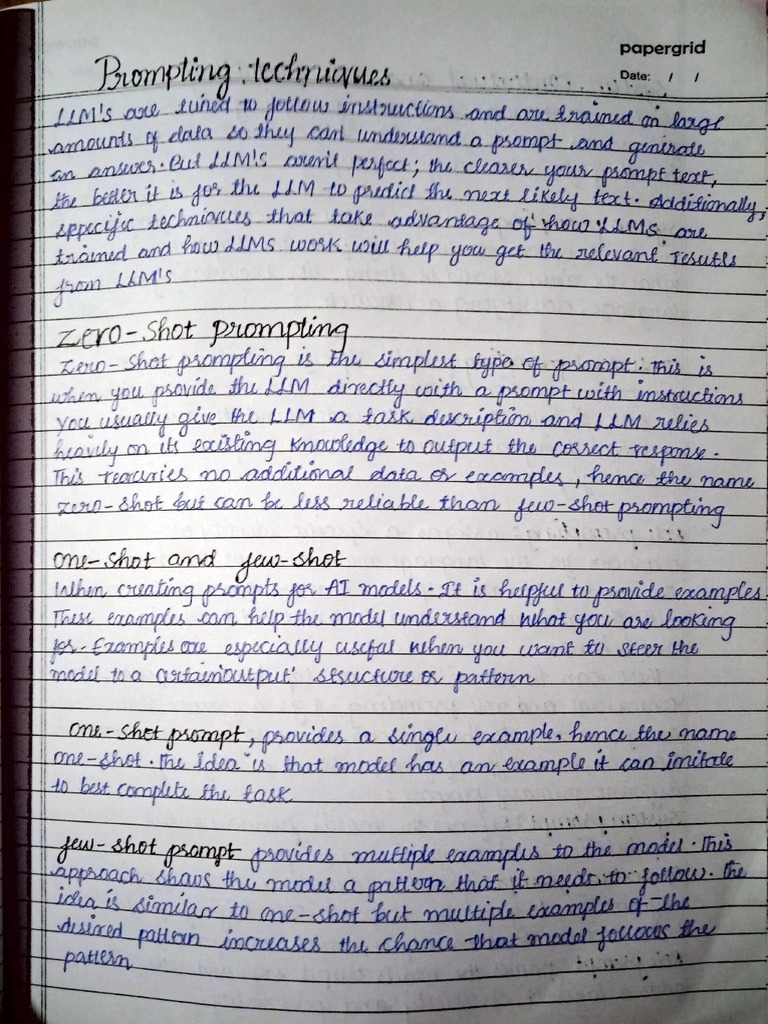 papergrid
Date: / /
Prompting techniques
LLM's are tuned to follow instructions and are trained on large
amounts of data so they can understand a prompt and generate
an answer. But LLM's aren't perfect; the clearer your prompt text,
the better it is for the LLM to predict the next likely text. Additionally,
sppecific techniques that take advantage of how LLMs are
trained and how LLMs work will help you get the relevant results
from LLM's
Zero-shot prompting
Zero-shot prompting is the simplest type of prompt. This is
when you provide the LLM directly with a prompt with instructions
you usually give the LLM a task description and LLM relies
heavily on its existing knowledge to output the correct response.
This requries no additional data or examples, hence the name
zero-shot but can be less reliable than few-shot prompting
one-shot and few-shot
When creating prompts for AI models. It is helpful to provide examples.
These examples can help the model understand what you are looking
for. Examples are especially useful when you want to steer the
model to a certain output structure or pattern
one-shot prompt, provides a single example, hence the name
one-shot. The idea is that model has an example it can imitate
to best complete the task
few-shot prompt provides multiple examples to the model. This
approach shows the model a pattern that it needs to follow. The
idea is similar to one-shot but multiple examples of the
desired pattern increases the chance that model follows the
pattern